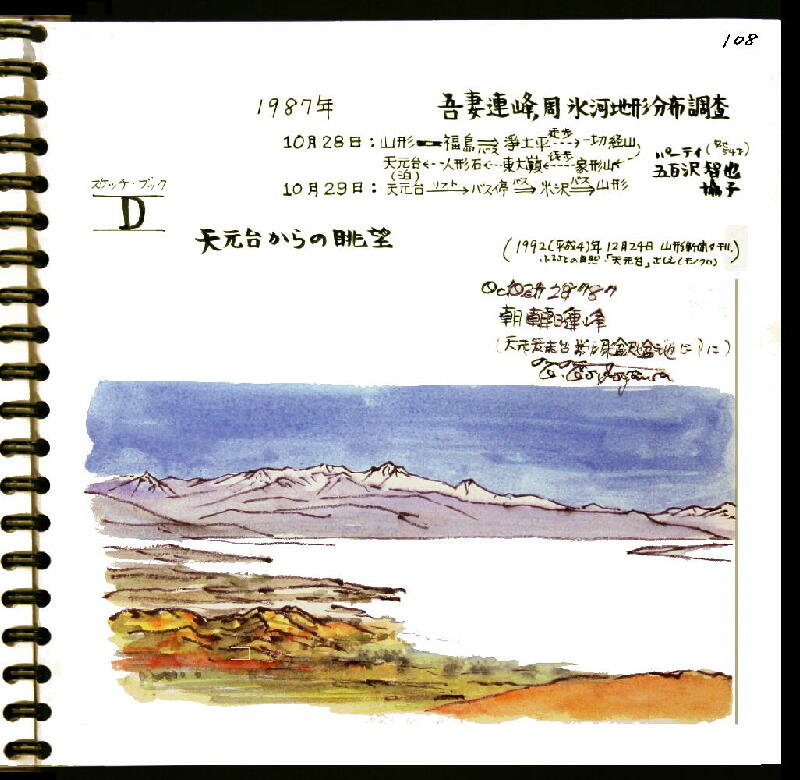 108
1987年
吾妻連峰,周氷河地形分布調査
10月28日:山形 福島⇒バス浄土平 徒歩 一切経山
天元台←人形石←東大巓←徒歩 家形山
(泊)
10月29日:天元台 リフト→バス停 バス⇒米沢 バス⇒山形
パーティ
五百沢智也
スケッチ・ブック
D
天元台からの眺望
(1992(平成4)年12月24日 山形新聞夕刊.
ふるさとの自然「天元台」
October 28 '87
朝日連峰